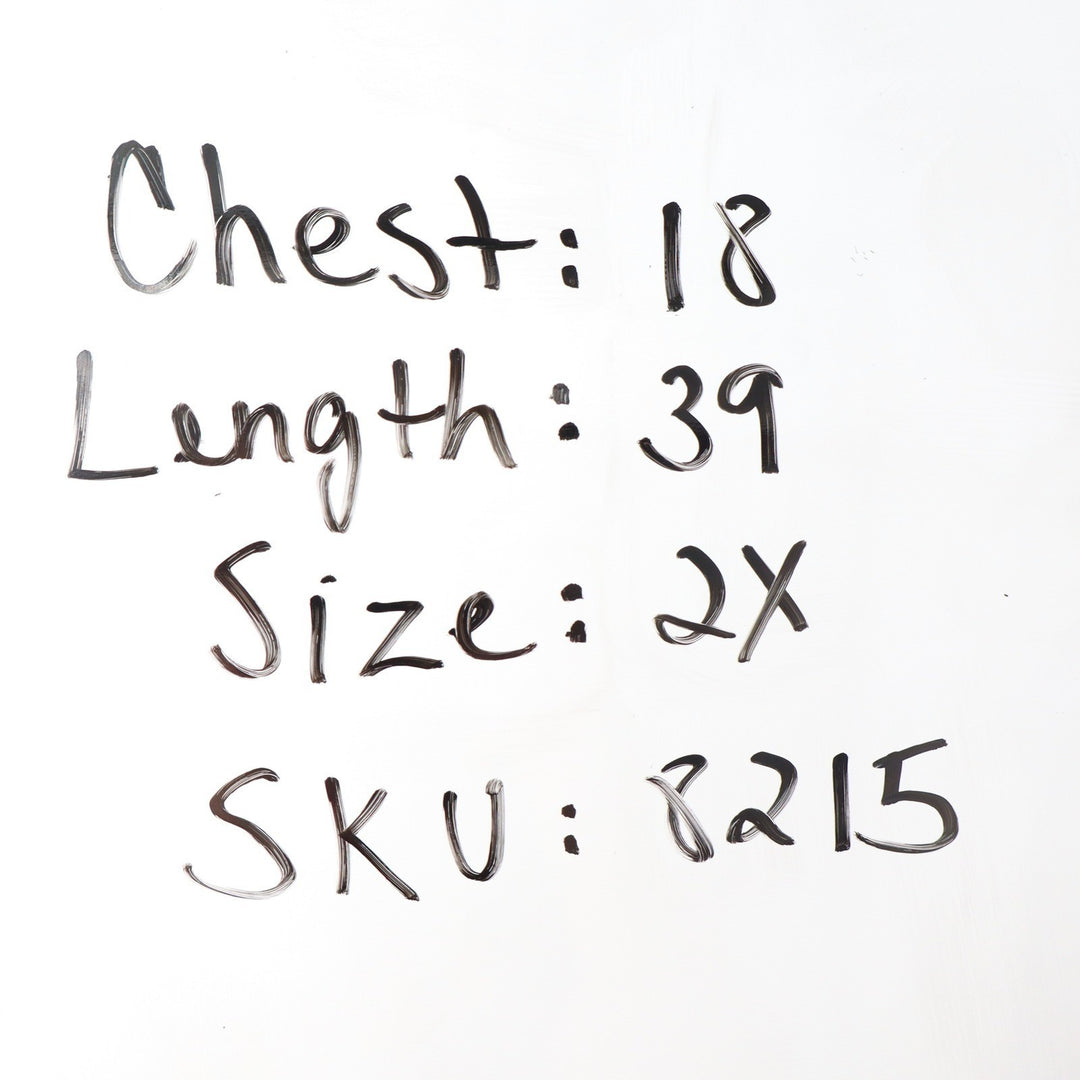 Chest: 18
Length: 39
Size: 2X
SKU: 8215